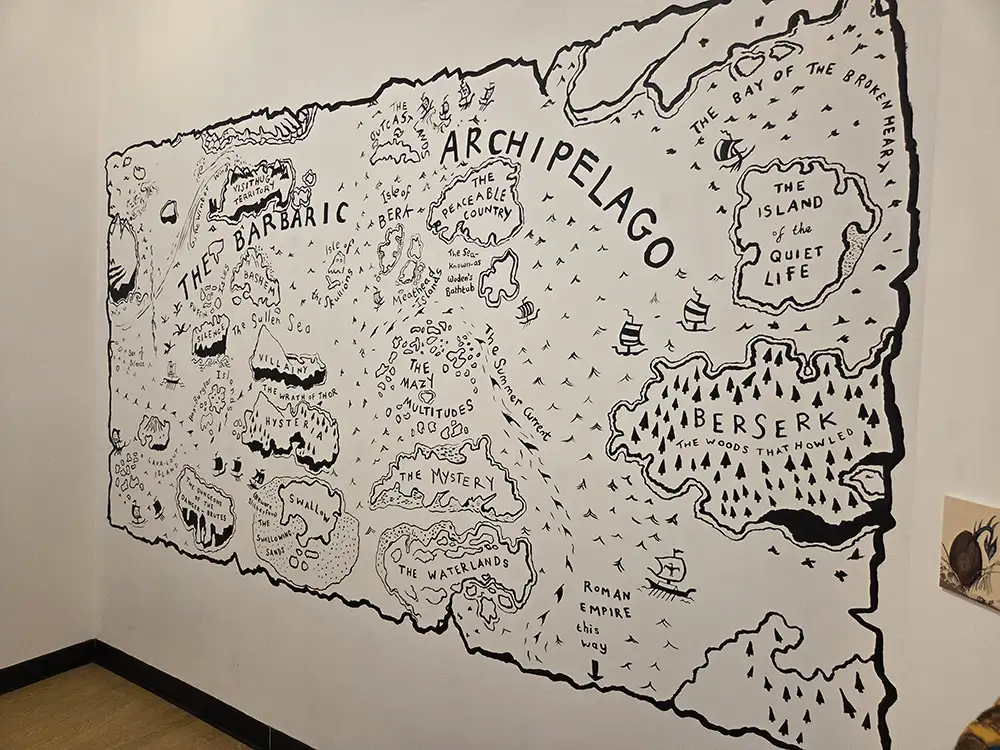 THE
OUTCAST
THE BARBARIC
ARCHIPELAGO
THE BAY OF THE BROKEN HEART
VISITHUG
TERRITORY
Isle of
BERK
THE
PEACEABLE
COUNTRY
THE
ISLAND
of the
QUIET
LIFE
Isle of
the Skullions
BASHEM
Meathead
Island
The Sea-
Known-as
Woden's
Bathtub
SILENCE
The Sullen Sea
VILLAINY
THE WRATH OF THOR
HYSTERIA
THE
MAZY
MULTITUDES
The Summer Current
BERSERK
THE WOODS THAT HOWLED
LAVA-LOUT
ISLAND
THE MYSTERY
SWALLOW
THE
SWALLOWING
SANDS
THE WATERLANDS
ROMAN
EMPIRE
this
way